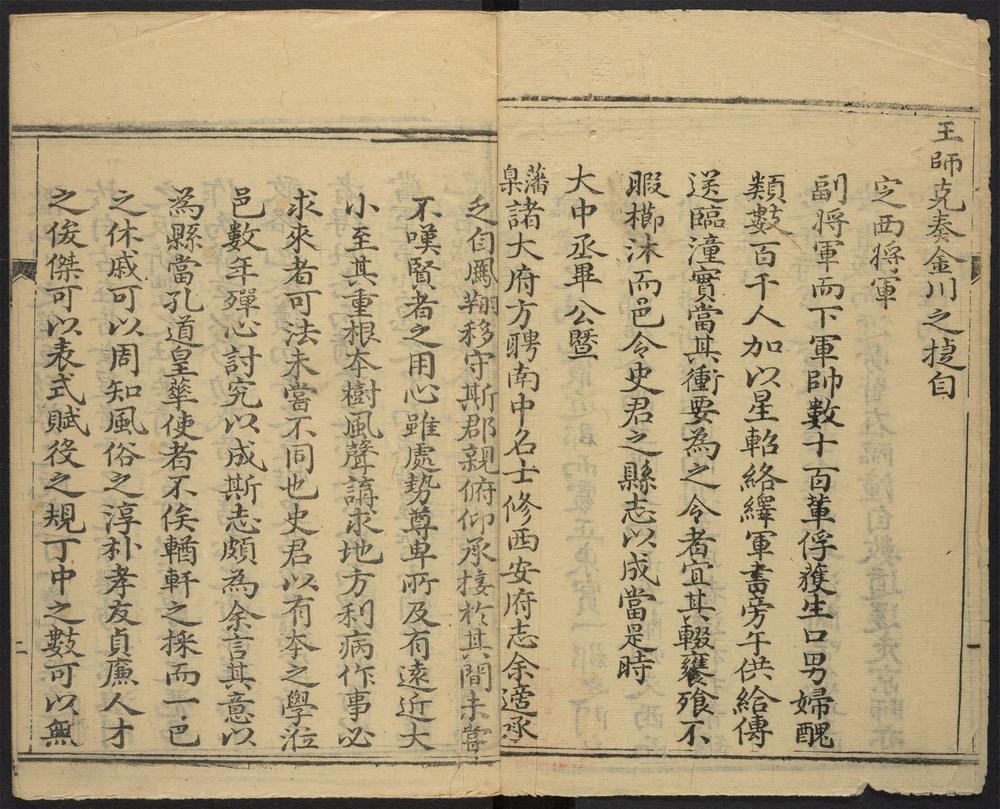 王師克奏金川之捷自
定西將軍
副將軍而下軍帥數十百軰俘獲生口男婦醜
類數百千人加以星軺絡繹軍書旁午供給傳
送臨潼實當其衝要為之令者宜其輟饔飱不
暇櫛沐而邑令史君之縣志以成當是時
大中丞畢公暨
藩臬諸大府方聘南中名士修西安府志余適承
乏自鳳翔移守斯郡親俯仰承接於其間未嘗
不嘆賢者之用心雖處勢尊卑所及有遠近大
小至其重根本樹風聲講求地方利病作事必
求來者可法未嘗不同也史君以有本之學涖
邑數年殫心討究以成斯志頗為余言其意以
為縣當孔道皇華使者不俟輶軒之採而一邑
之休戚可以周知風俗之淳朴孝友貞廉人才
之俊傑可以表式賦役之規丁中之數可以無
二